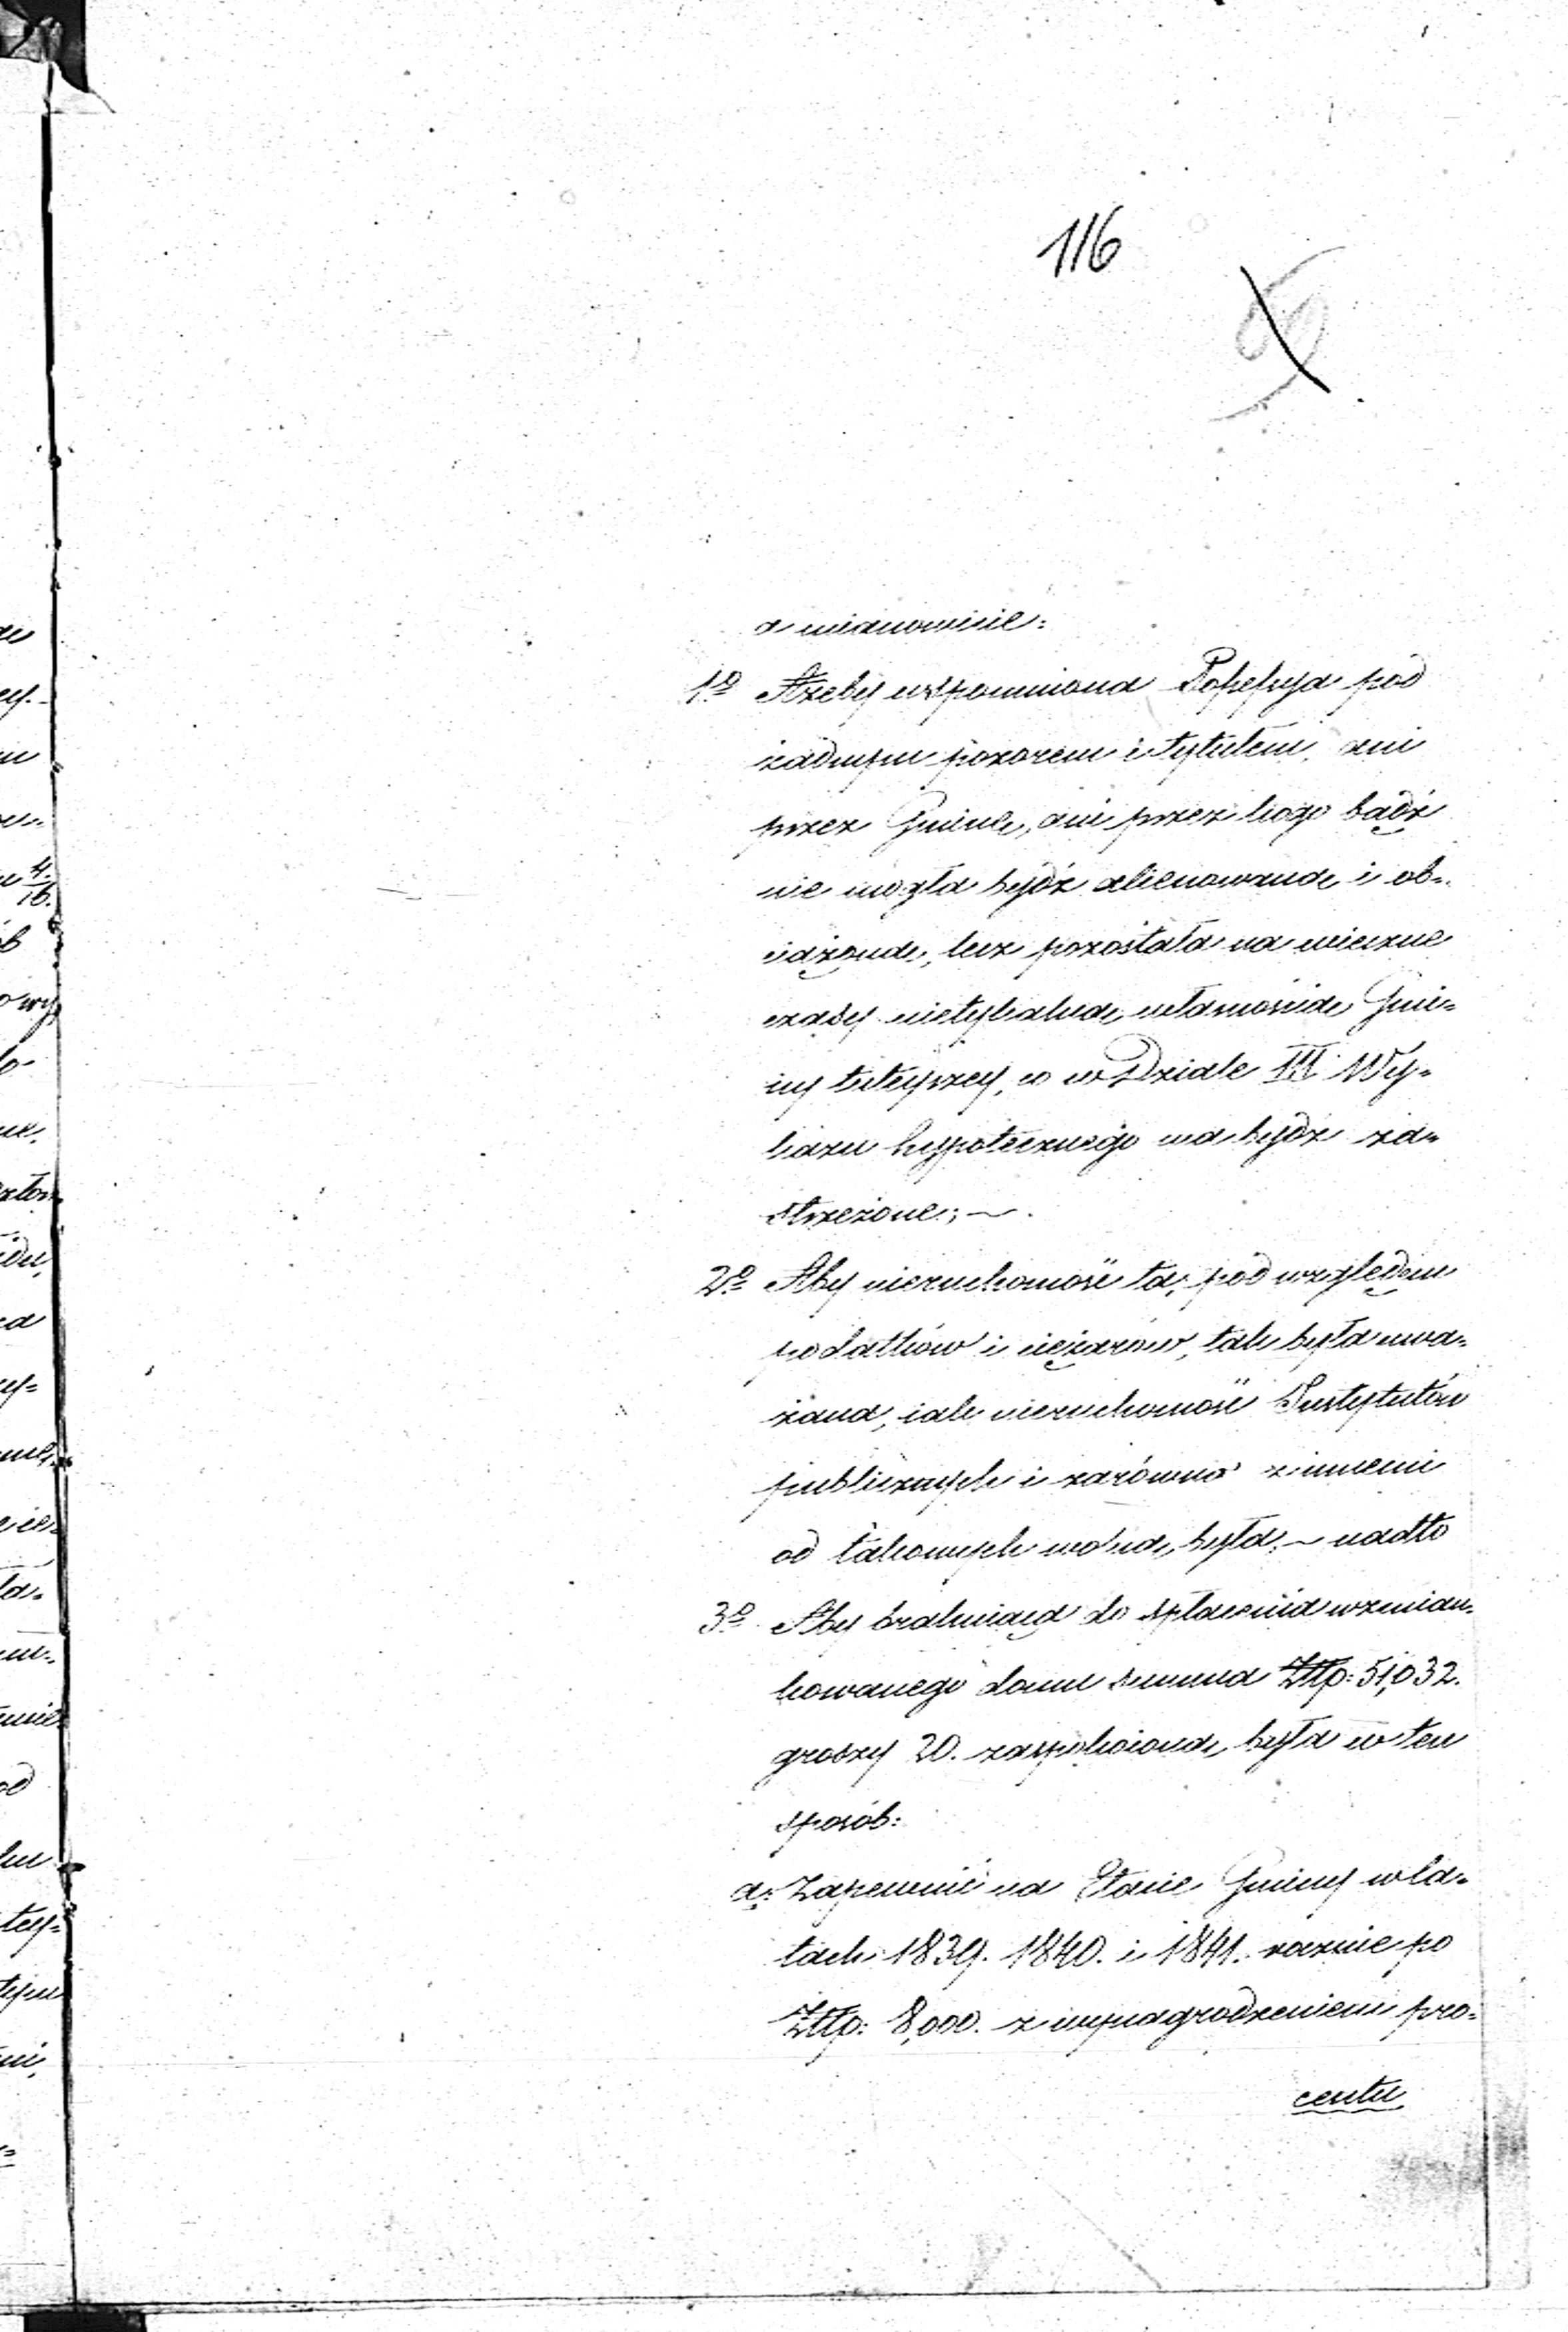 116
a mianowicie:
1º Ażeby wspomniona Possessya pod
żadnym pozorem i tytułem, ani
przez Gminę, ani przez kogo bądź
nie mogła bydź alienowaną i ob-
ciążoną, lecz pozostała na wieczne
czasy nietykalną własnością Gmi-
ny tuteyszey, co w Dziale III Wy-
kazu hypotecznego ma bydź za-
strzeżone; ~
2º Aby nieruchomość ta, pod względem
podatków i ciężarów, tak była uwa-
żana, iak nieruchomość Instytutów
publicznych i zarówno z innemi
od takowych wolną była; ~ nadto
3º Aby brakuiąca do spłacenia wzmian-
kowanego domu summa Złtp: 51,032.
groszy 20. zaspokoioną była w ten
sposób:
a: Zapewnić na Etacie Gminy w la-
tach 1839. 1840. i 1841. rocznie po
Złtp: 8,000. z wynagrodzeniem pro-
centu